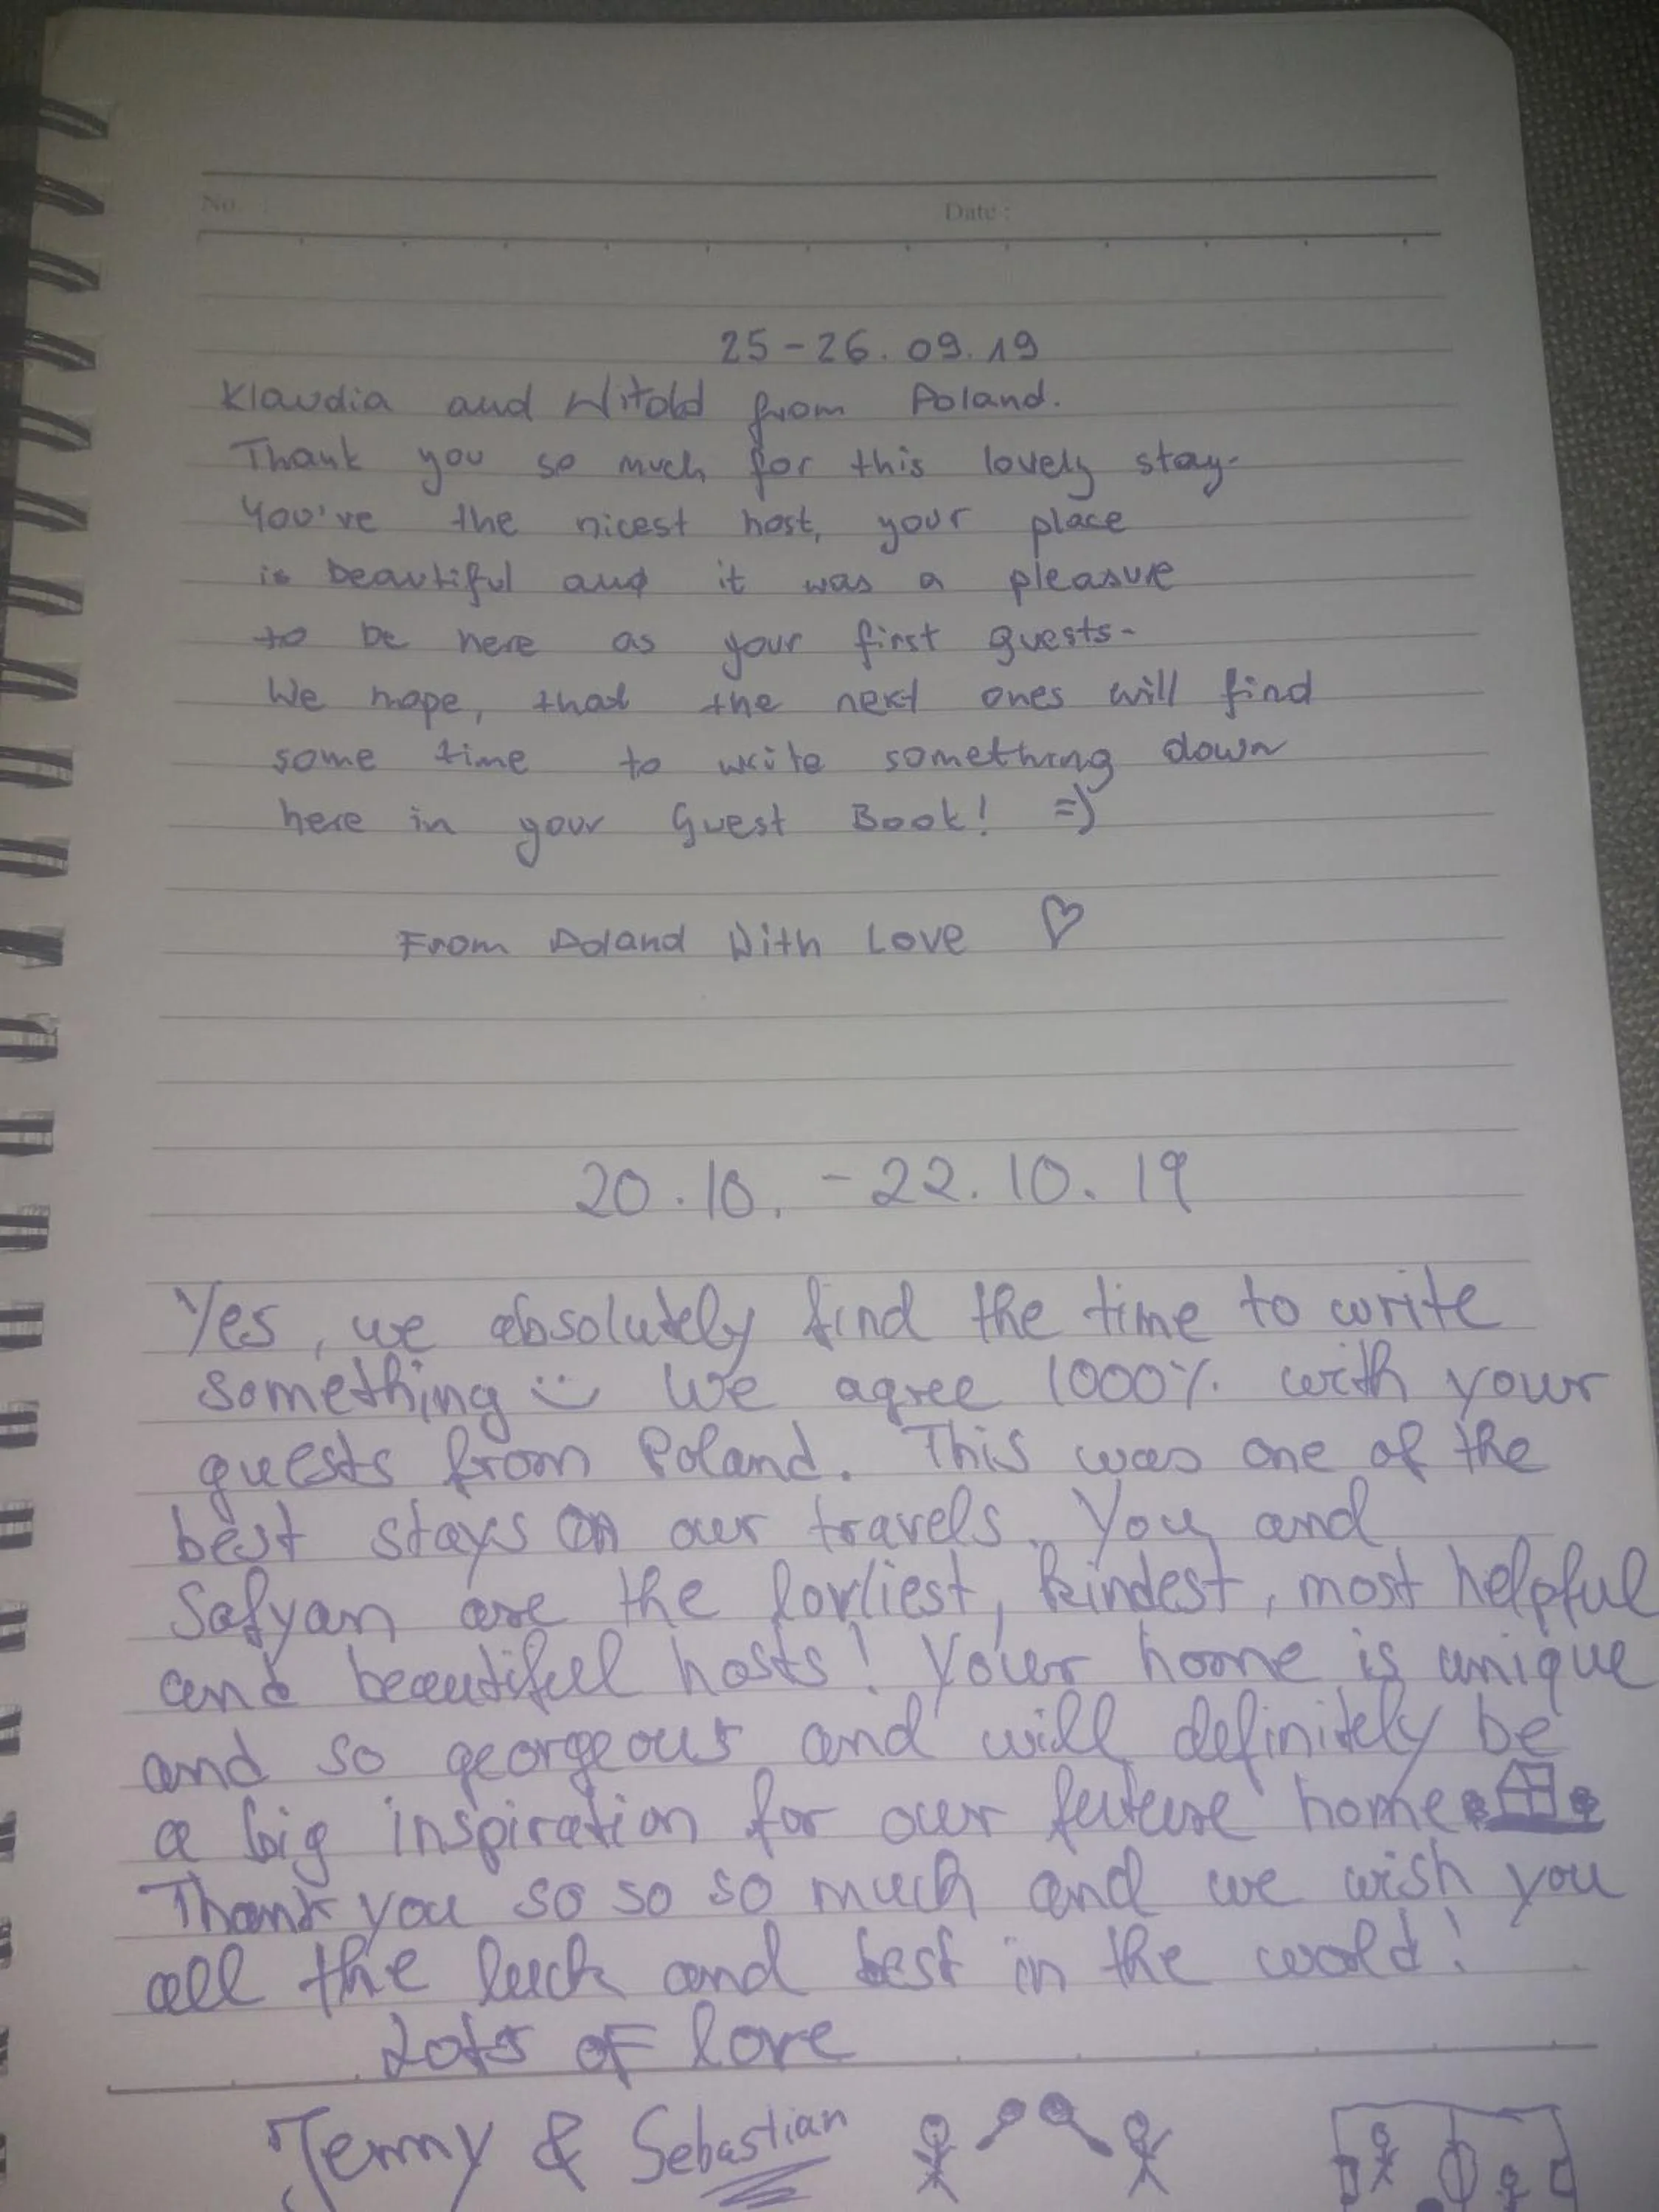 No.
Date :
25-26.09.19
Klaudia and Witold from Poland.
Thank you so much for this lovely stay.
You've the nicest host, your place
is beautiful and it was a pleasure
to be here as your first guests.
We hope, that the next ones will find
some time to write something down
here in your Guest Book! =)
From Poland With Love ♡
20.10. - 22.10.19
Yes, we absolutely find the time to write
something :) We agree 1000% with your
guests from Poland. This was one of the
best stays on our travels. You and
Safyan are the lovliest, kindest, most helpful
and beautiful hosts! Your home is unique
and so georgeous and will definitely be
a big inspiration for our future home
Thank you so so so much and we wish you
all the luck and best in the world!
Lots of love
Jenny & Sebastian